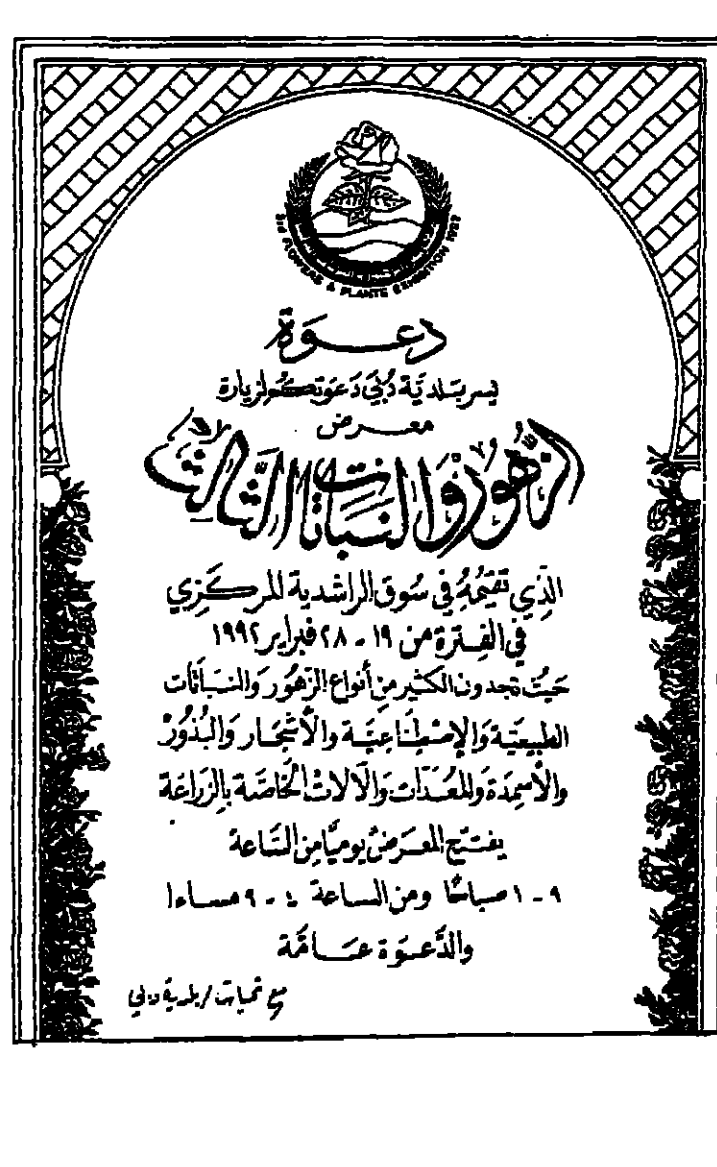 3rd FLOWERS & PLANTS EXHIBITION 1992
دعوة
يسر بلدية دبي دعوتكم لزيارة
معرض
الزهور والنباتات الثالث
الذي تقيمه في سوق الراشدية المركزي
في الفترة من ١٩ - ٢٨ فبراير ١٩٩٢
حيث تجدون الكثير من أنواع الزهور والنباتات
الطبيعية والإصطناعية والأشجار والبذور
والأسمدة والمعدات والآلات الخاصة بالزراعة
يفتتح المعرض يوميا من الساعة
٩ - ١ صباحًا ومن الساعة ٤ - ٩ مساءا
والدعوة عامة
مع تحيات / بلدية دبي